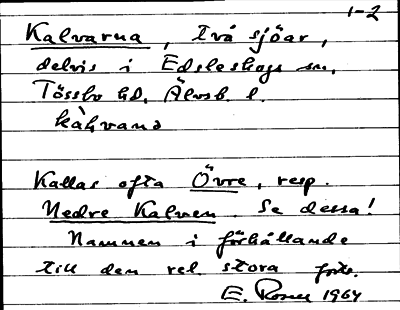 1-2
Kalvarna, två sjöar,
delvis i Edsleskogs sn,
Tössbo hd, Älvsb. l.
kàlvana
Kallas ofta Övre, resp.
Nedre Kalven. Se dessa!
Namnen i förhållande
till den rel. stora
E. Rosell 1964